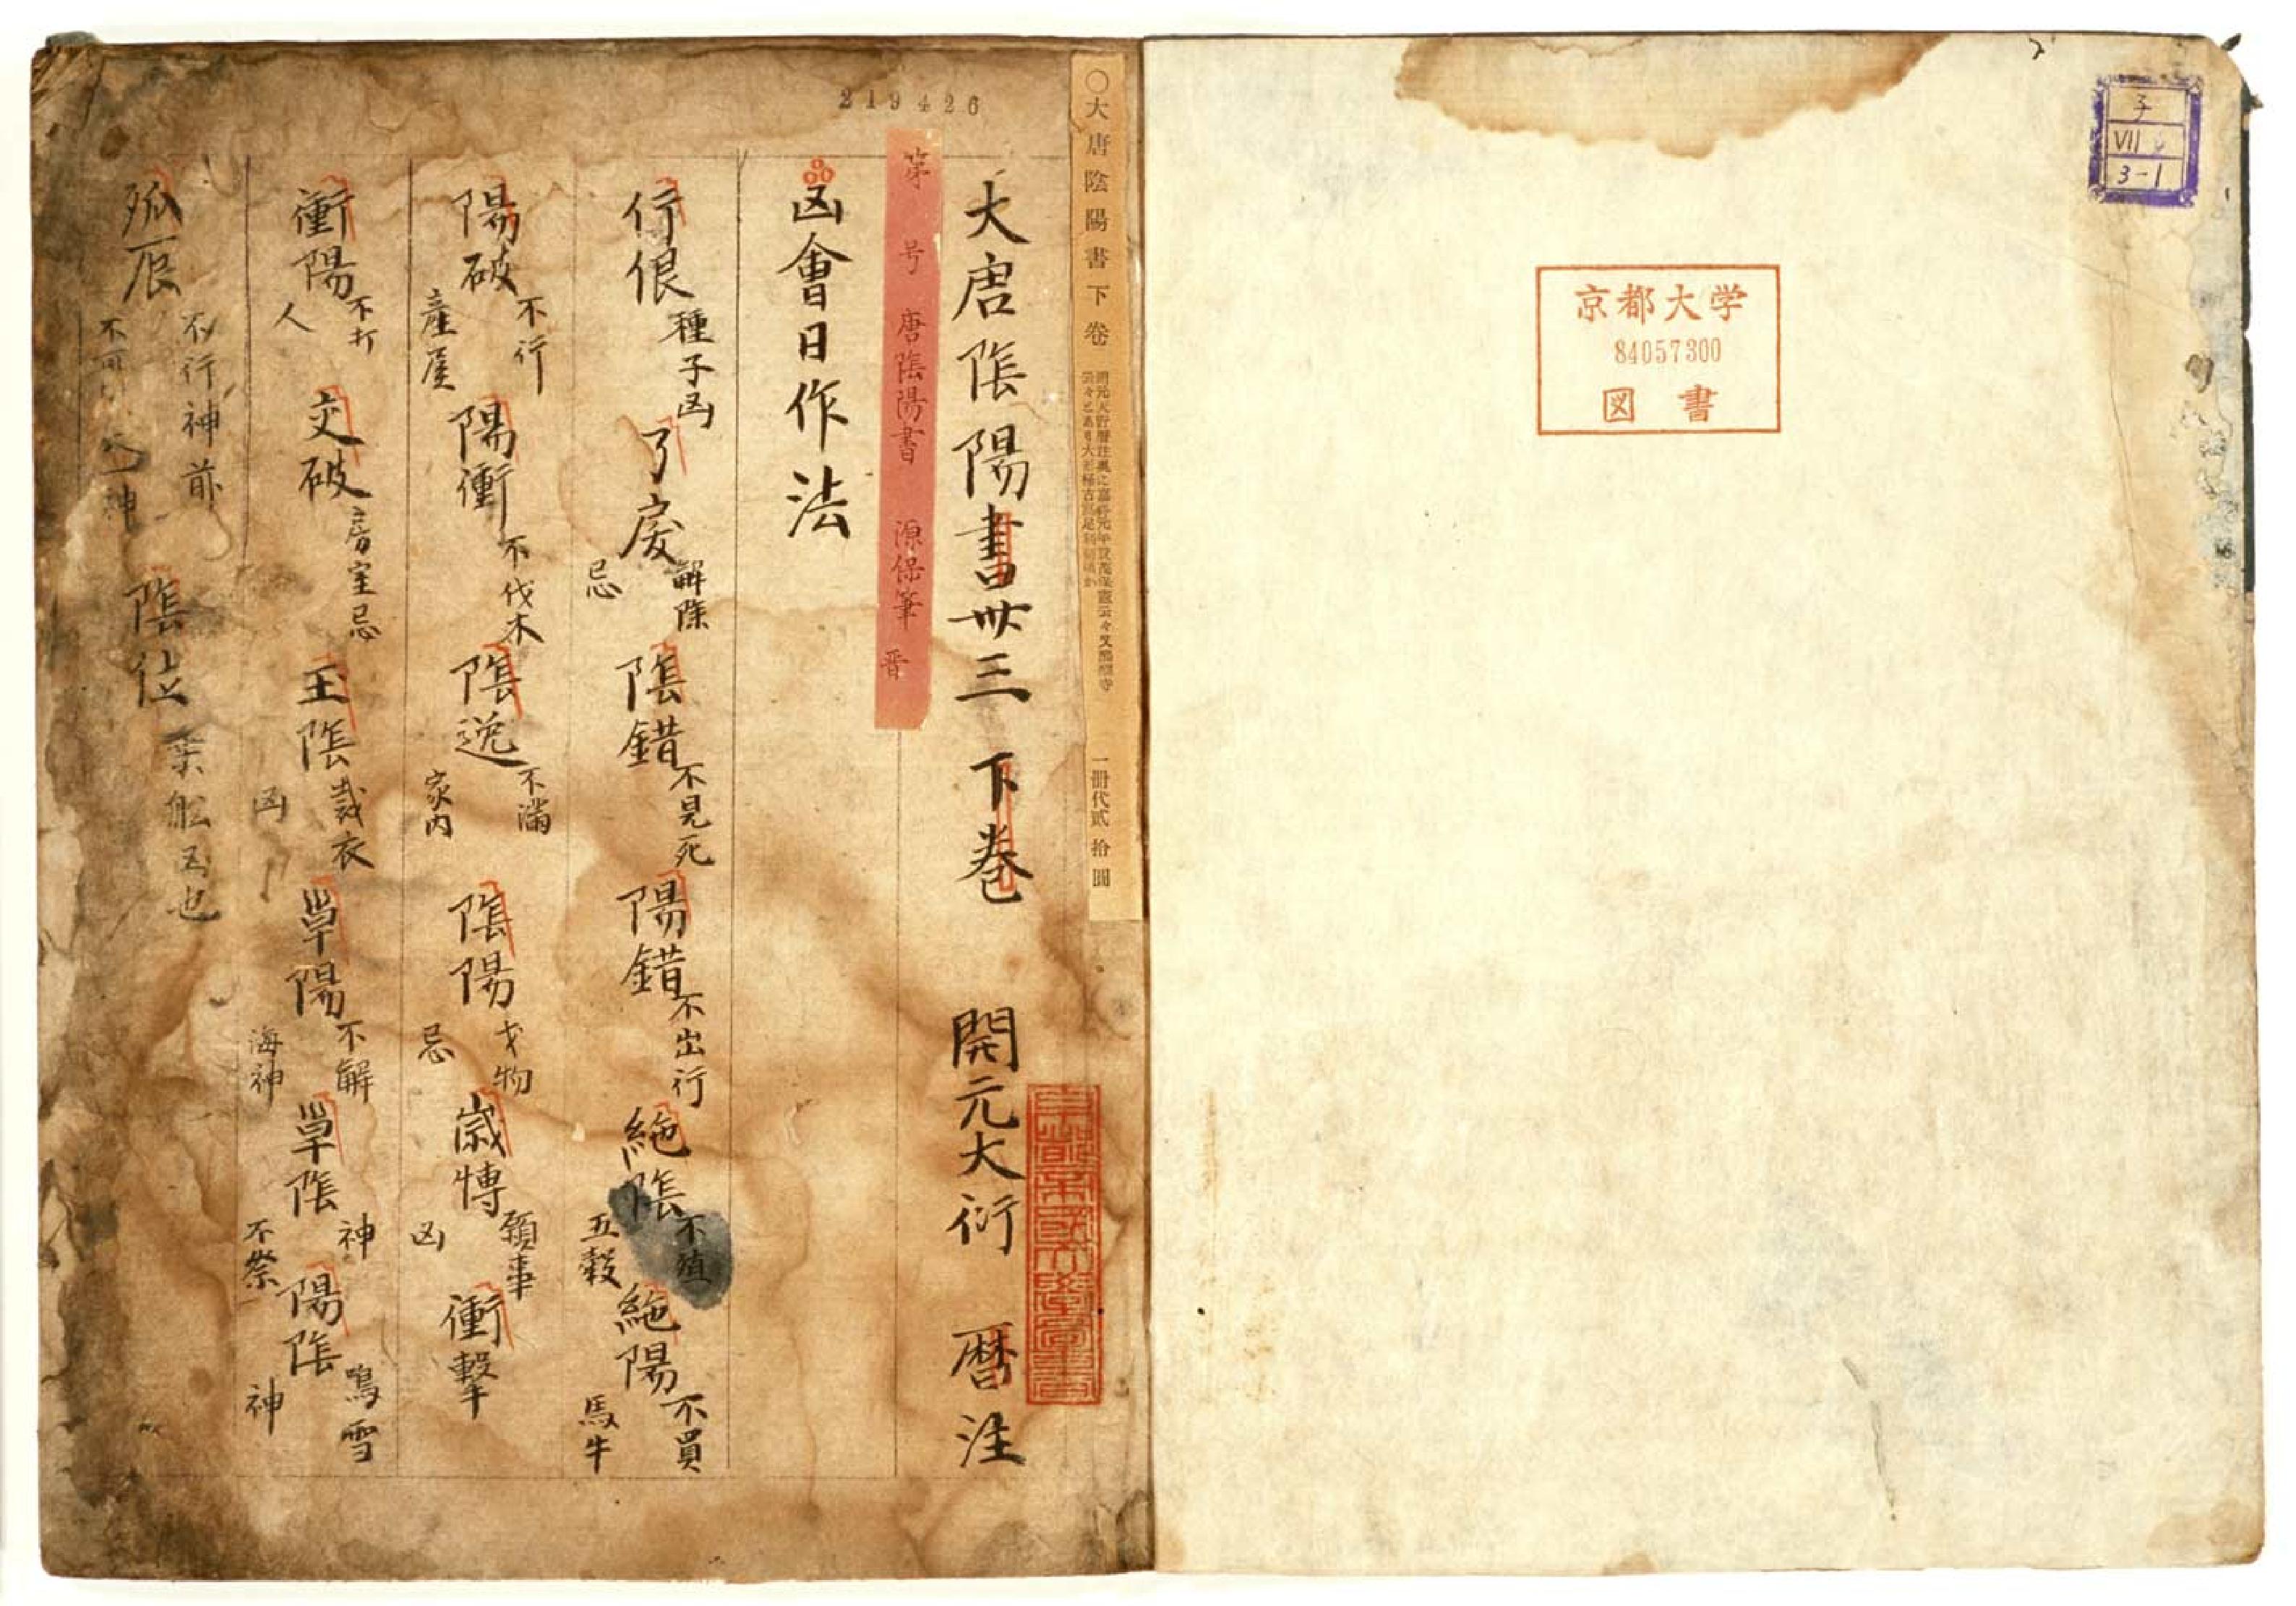 子
VII 6
3-1
京都大学
84057300
図書
〇大唐陰陽書下卷
一冊代貳拾圓
219426
大唐陰陽書卅三 下巻 開元大衍 暦注
第 号 唐陰陽書 源保筆 晋
凶會日作法
行佷 種子凶 了戾 解除忌 陰錯 不見死 陽錯 不出行 絶陰 不殖五穀 絶陽 不買馬牛
陽破 不行産屋 陽衝 不伐木 陰逃 不满家内 陰陽 戈物忌 歳愽 領事凶 衝擊
衝陽 不打人 交破 房室忌 王陰 裁衣凶 單陽 不解海神 單陰 神不祭 陽陰 鳴雪神
孤辰 不行神前 陰位 乗舩凶也